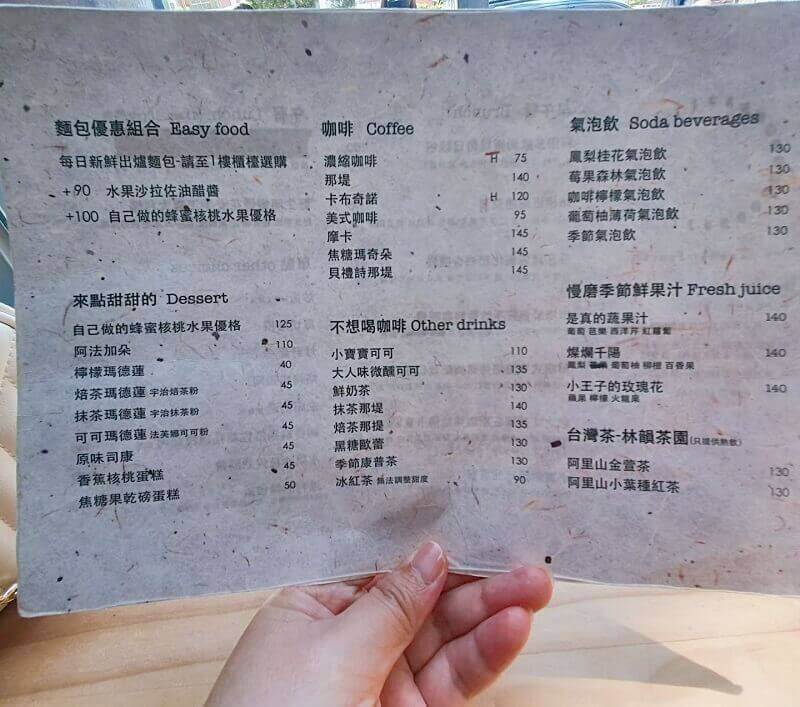 麵包優惠組合 Easy food
每日新鮮出爐麵包-請至1樓櫃檯選購
+90 水果沙拉佐油醋醬
+100 自己做的蜂蜜核桃水果優格
來點甜甜的 Dessert
自己做的蜂蜜核桃水果優格 125
阿法加朵 110
檸檬瑪德蓮 40
焙茶瑪德蓮 宇治焙茶粉 45
抹茶瑪德蓮 宇治抹茶粉 45
可可瑪德蓮 法芙娜可可粉 45
原味司康 45
香蕉核桃蛋糕 45
焦糖果乾磅蛋糕 50
咖啡 Coffee
濃縮咖啡 H 75
那堤 140
卡布奇諾 H 120
美式咖啡 95
摩卡 145
焦糖瑪奇朵 145
貝禮詩那堤 145
不想喝咖啡 Other drinks
小寶寶可可 110
大人味微醺可可 135
鮮奶茶 130
抹茶那堤 140
焙茶那提 135
黑糖歐蕾 130
季節康普茶 130
冰紅茶 無法調整甜度 90
氣泡飲 Soda beverages
鳳梨桂花氣泡飲 130
莓果森林氣泡飲 130
咖啡檸檬氣泡飲 130
葡萄柚薄荷氣泡飲 130
季節氣泡飲 130
慢磨季節鮮果汁 Fresh juice
是真的蔬果汁 140
葡萄 芭樂 西洋芹 紅蘿蔔
燦爛千陽 140
鳳梨 葡萄柚 柳橙 百香果
小王子的玫瑰花 140
蘋果 檸檬 火龍果
台灣茶-林韻茶園(只提供熱飲)
阿里山金萱茶 130
阿里山小葉種紅茶 130